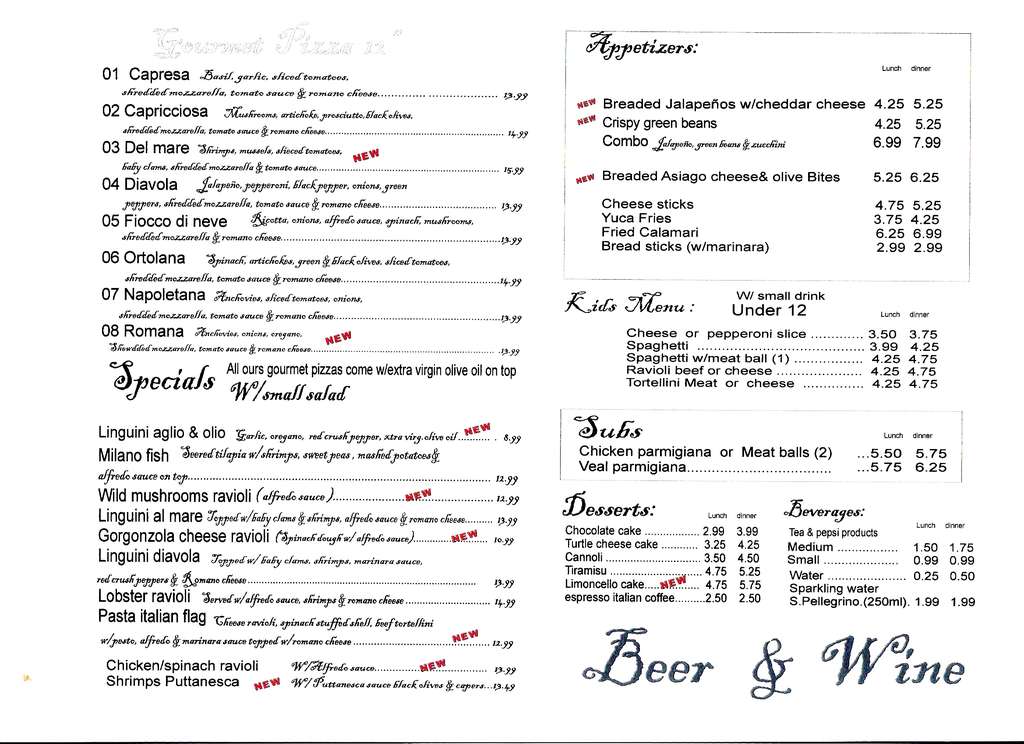 Gourmet Pizza 12"
01 Capresa Basil, garlic, sliced tomatoes,
shredded mozzarella, tomato sauce & romano cheese.............. .................... 13.99
02 Capricciosa Mushrooms, artichoke, prosciutto, black olives,
shredded mozzarella, tomato sauce & romano cheese........................................ 14.99
03 Del mare Shrimps, mussels, slieced tomatoes, NEW
baby clams, shredded mozzarella & tomato sauce........................................ 15.99
04 Diavola Jalapeño, pepperoni, black pepper, onions, green
peppers, shredded mozzarella, tomato sauce & romano cheese.......................... 13.99
05 Fiocco di neve Ricotta, onions, alfredo sauce, spinach, mushrooms,
shredded mozzarella & romano cheese..................................................13.99
06 Ortolana Spinach, artichokes, green & black olives, sliced tomatoes,
shredded mozzarella, tomato sauce & romano cheese....................................14.99
07 Napoletana Anchovies, sliced tomatoes, onions,
shredded mozzarella, tomato sauce & romano cheese....................................13.99
08 Romana Anchovies, onions, oregano, NEW
Shewdded mozzarella, tomato sauce & romano cheese.................................... .13.99
Specials All ours gourmet pizzas come w/extra virgin olive oil on top
W/small salad
Linguini aglio & olio Garlic, oregano, red crush pepper, xtra virg.olive oil........... . 8.99 NEW
Milano fish Seered tilapia w/shrimps, sweet peas , mashed potatoes &
alfredo sauce on top.................................................................. 12.99
Wild mushrooms ravioli ( alfredo sauce )..................NEW................ 12.99
Linguini al mare Topped w/baby clams & shrimps, alfredo sauce & romano cheese.......... 13.99
Gorgonzola cheese ravioli (Spinach dough w/ alfredo sauce)..........NEW... 10.99
Linguini diavola Topped w/ baby clams, shrimps, marinara sauce,
red crush peppers & Romano cheese .................................................... 13.99
Lobster ravioli Served w/alfredo sauce, shrimps & romano cheese ...................... 14.99
Pasta italian flag Cheese ravioli, spinach stuffed shell, beef tortellini
w/pesto, alfredo & marinara sauce topped w/romano cheese ..................NEW.... 12.99
Chicken/spinach ravioli W/Alfredo sauce............NEW............ 13.99
Shrimps Puttanesca NEW W/ Puttanesca sauce black olives & capers...13.49
Appetizers:
Lunch dinner
NEW Breaded Jalapeños w/cheddar cheese 4.25 5.25
NEW Crispy green beans 4.25 5.25
Combo Jalapeño, green beans & zucchini 6.99 7.99
NEW Breaded Asiago cheese& olive Bites 5.25 6.25
Cheese sticks 4.75 5.25
Yuca Fries 3.75 4.25
Fried Calamari 6.25 6.99
Bread sticks (w/marinara) 2.99 2.99
Kids Menu : W/ small drink
Under 12 Lunch dinner
Cheese or pepperoni slice ............. 3.50 3.75
Spaghetti .................................. 3.99 4.25
Spaghetti w/meat ball (1) ................. 4.25 4.75
Ravioli beef or cheese ..................... 4.25 4.75
Tortellini Meat or cheese ............... 4.25 4.75
Subs Lunch dinner
Chicken parmigiana or Meat balls (2) ...5.50 5.75
Veal parmigiana................................. ...5.75 6.25
Desserts: Lunch dinner
Chocolate cake ................ 2.99 3.99
Turtle cheese cake ............ 3.25 4.25
Cannoli ........................... 3.50 4.50
Tiramisu ........................... 4.75 5.25
Limoncello cake.....NEW..... 4.75 5.75
espresso italian coffee..........2.50 2.50
Beverages: Lunch dinner
Tea & pepsi products
Medium .................. 1.50 1.75
Small ...................... 0.99 0.99
Water ....................... 0.25 0.50
Sparkling water
S.Pellegrino.(250ml). 1.99 1.99
Beer & Wine